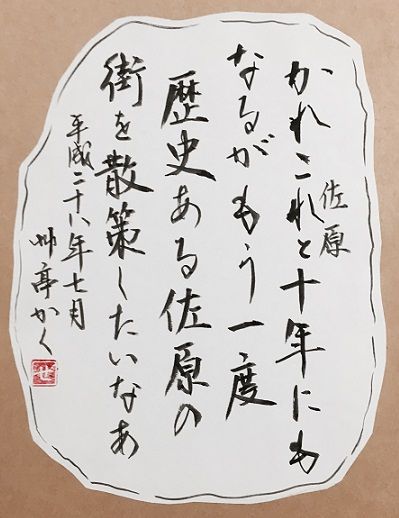 佐原
かれこれと十年にも
なるがもう一度
歴史ある佐原の
街を散策したいなあ
平成二十八年七月
卅亭かく
せ